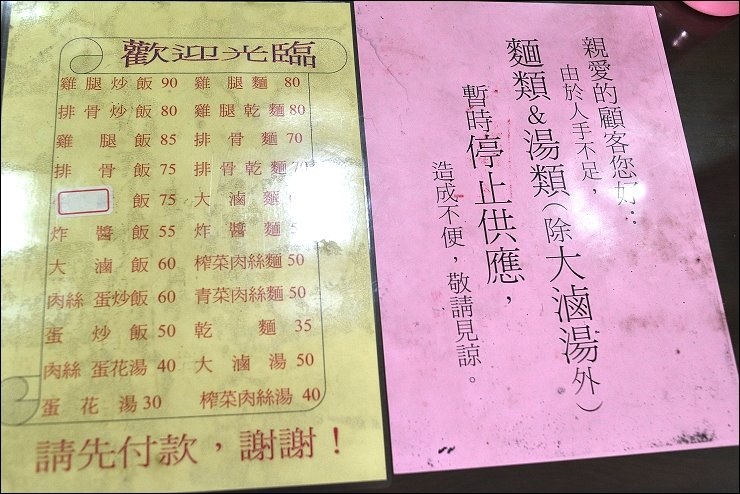 歡迎光臨
雞腿炒飯 90 雞腿麵 80
排骨炒飯 80 雞腿乾麵 80
雞腿飯 85 排骨麵 70
排骨飯 75 排骨乾麵 70
飯 75 大滷麵
炸醬飯 55 炸醬麵
大滷飯 60 榨菜肉絲麵 50
肉絲蛋炒飯 60 青菜肉絲麵 50
蛋炒飯 50 乾麵 35
肉絲蛋花湯 40 大滷湯 50
蛋花湯 30 榨菜肉絲湯 40
請先付款，謝謝！
親愛的顧客您好：
由於人手不足，
麵類&湯類（除大滷湯外）
暫時停止供應，
造成不便，敬請見諒。